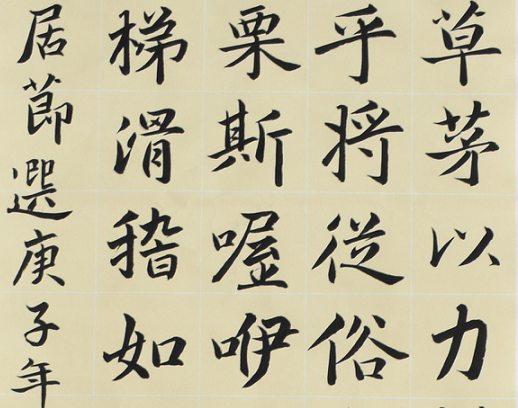 草茅以力
乎將從俗
栗斯喔咿
梯滑稽如
居節選庚子年